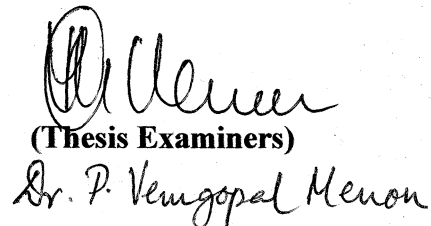 Menon
(Thesis Examiners)
Dr. P. Venugopal Menon